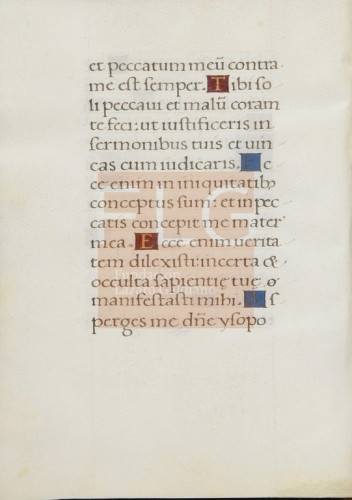 et peccatum meū contra
me est semper. Tibi so
li peccavi et malū coram
te feci: ut iustificeris in
sermonibus tuis et uin
cas cum iudicaris. Ec
ce enim in iniquitatibꝫ
conceptus sum: et in pec
catis concepit me mater
mea. Ecce enim uerita
tem dilexisti: incerta &
occulta sapientię tuę
manifestasti mihi. As
perges me dn̄e ysopo
FLG
Fundación